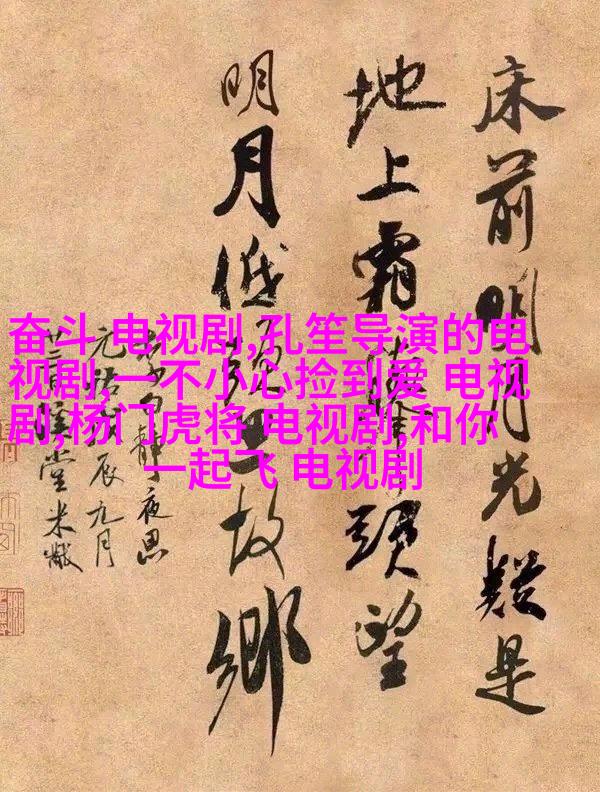 奋斗 电视剧,孔笙导演的电
视剧,一不小心捡到爱 电视
剧,杨门虎将 电视剧,和你
一起飞 电视剧
床前明月光疑是
地上霜舉頭望
明月低頭思故鄉
李白靜夜思
元祐戊辰九月
廿三日溪堂米黻